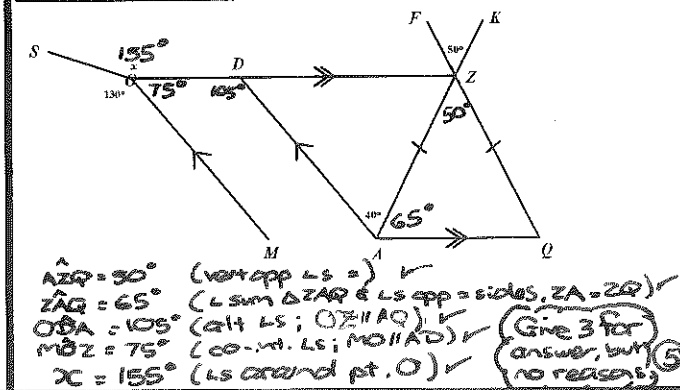 F K
155° 50°
S x D
O Z
130° 75° 105° 50°
40° 65°
M A Q
AẐQ = 50° (vert opp ∠s =) ✓
ZÂQ = 65° (∠ sum △ZAQ & ∠s opp = sides, ZA = ZQ) ✓
OD̂A = 105° (alt ∠s; OZ || AQ) ✓
MÔZ = 75° (co-int. ∠s; MO || AD) ✓
x = 155° (∠s around pt. O) ✓
Give 3 for
answer, but
no reasons,
5